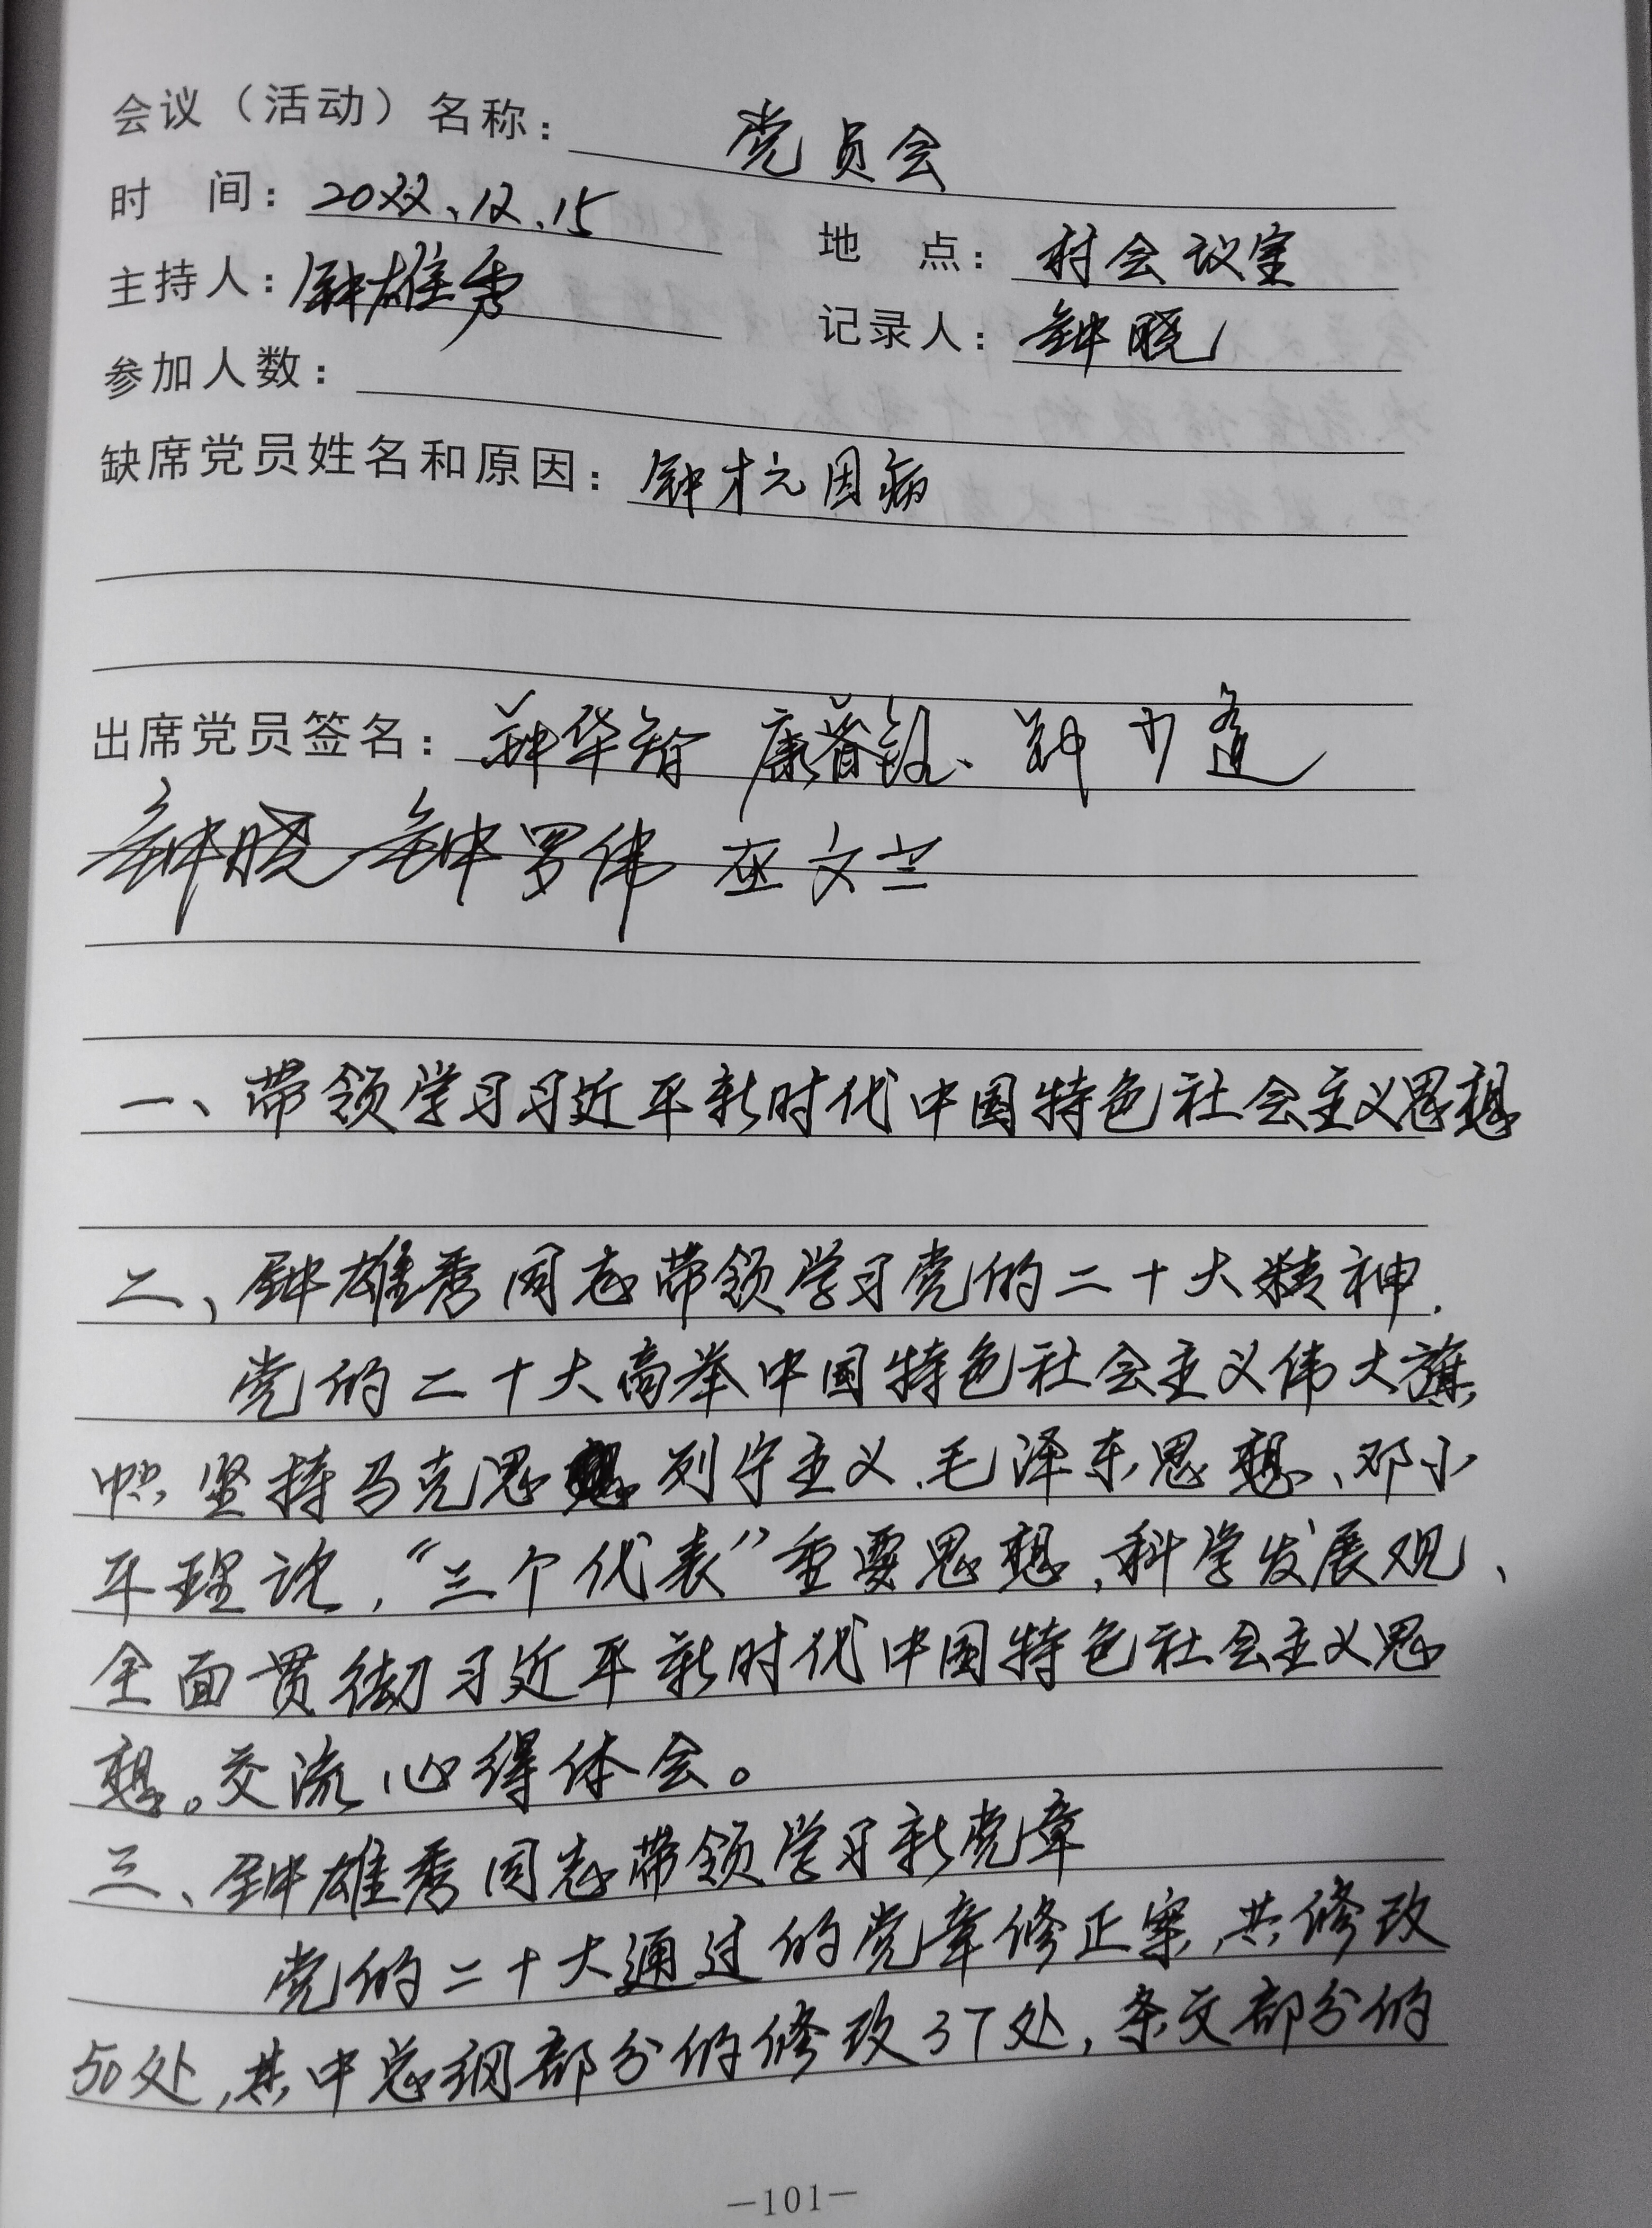 会议（活动）名称：党员会
时　间：2022、12、15
地　点：村会议室
主持人：钟雄秀
记录人：钟晓
参加人数：
缺席党员姓名和原因：钟才元因病
出席党员签名：钟华 康 钟少逢
钟晓 钟罗伟 巫文兰
一、带领学习习近平新时代中国特色社会主义思想
二、钟雄秀同志带领学习党的二十大精神.
党的二十大高举中国特色社会主义伟大旗
帜坚持马克思列宁主义、毛泽东思想、邓小
平理论，“三个代表”重要思想，科学发展观、
全面贯彻习近平新时代中国特色社会主义思
想。交流心得体会。
三、钟雄秀同志带领学习新党章
党的二十大通过的党章修正案，共修改
50处，其中总纲部分的修改37处，条文部分的
—101—